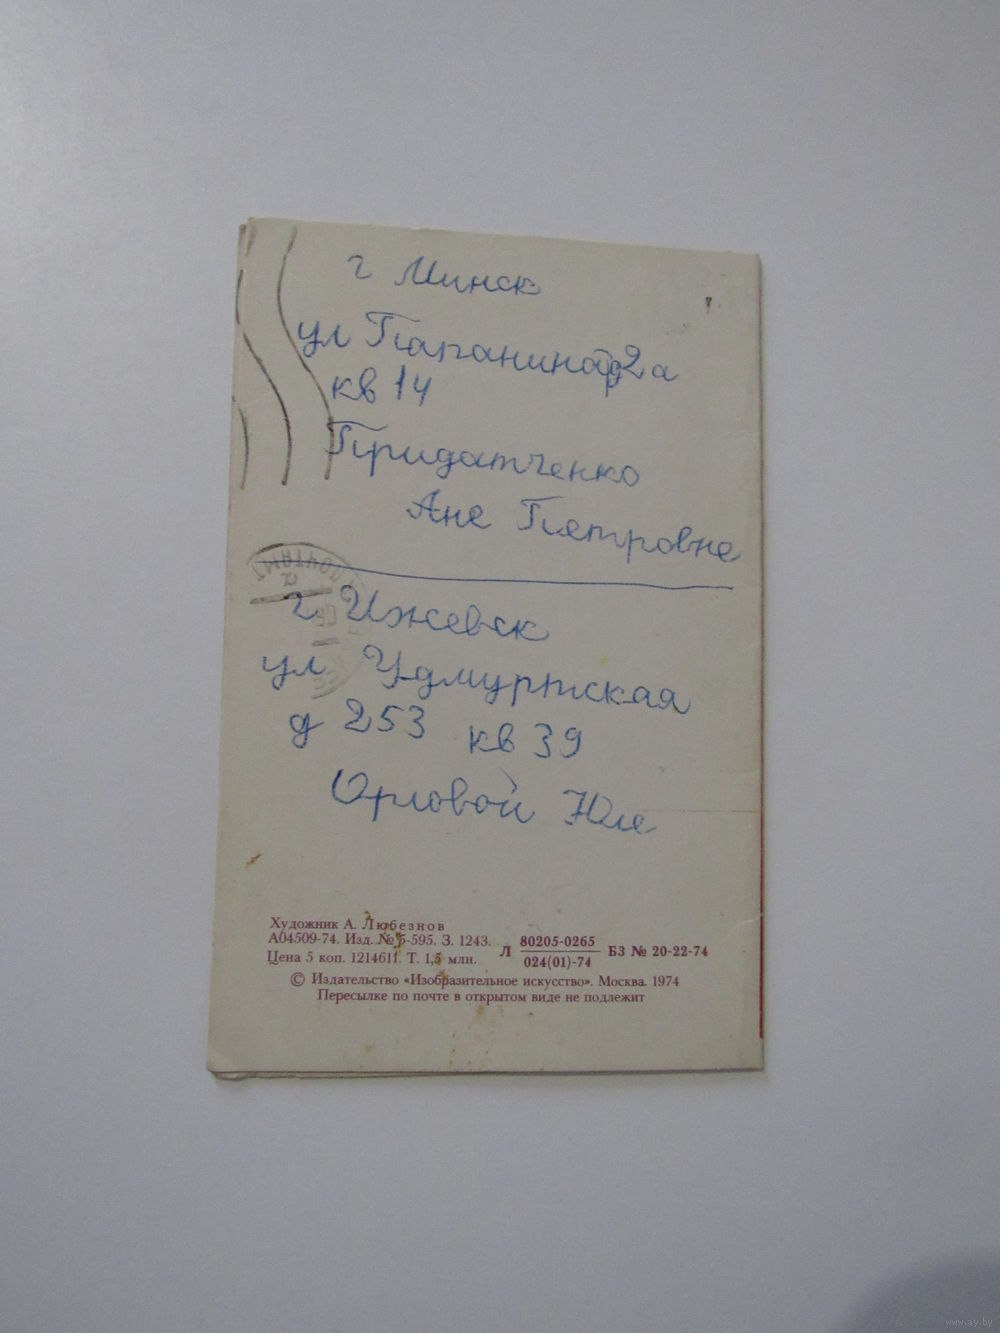 г Минск
ул Папанина д 2а
кв 14
Придатченко
Ане Петровне
ПОЧТАМТ
г Ижевск
ул Удмуртская
д 253 кв 39
Орловой Юле
Художник А. Любезнов
А04509-74. Изд. № 5-595. З. 1243.
Цена 5 коп. 1214611. Т. 1,5 млн.
Л 80205-0265 БЗ № 20-22-74
024(01)-74
© Издательство «Изобразительное искусство». Москва. 1974
Пересылке по почте в открытом виде не подлежит
www.ay.by